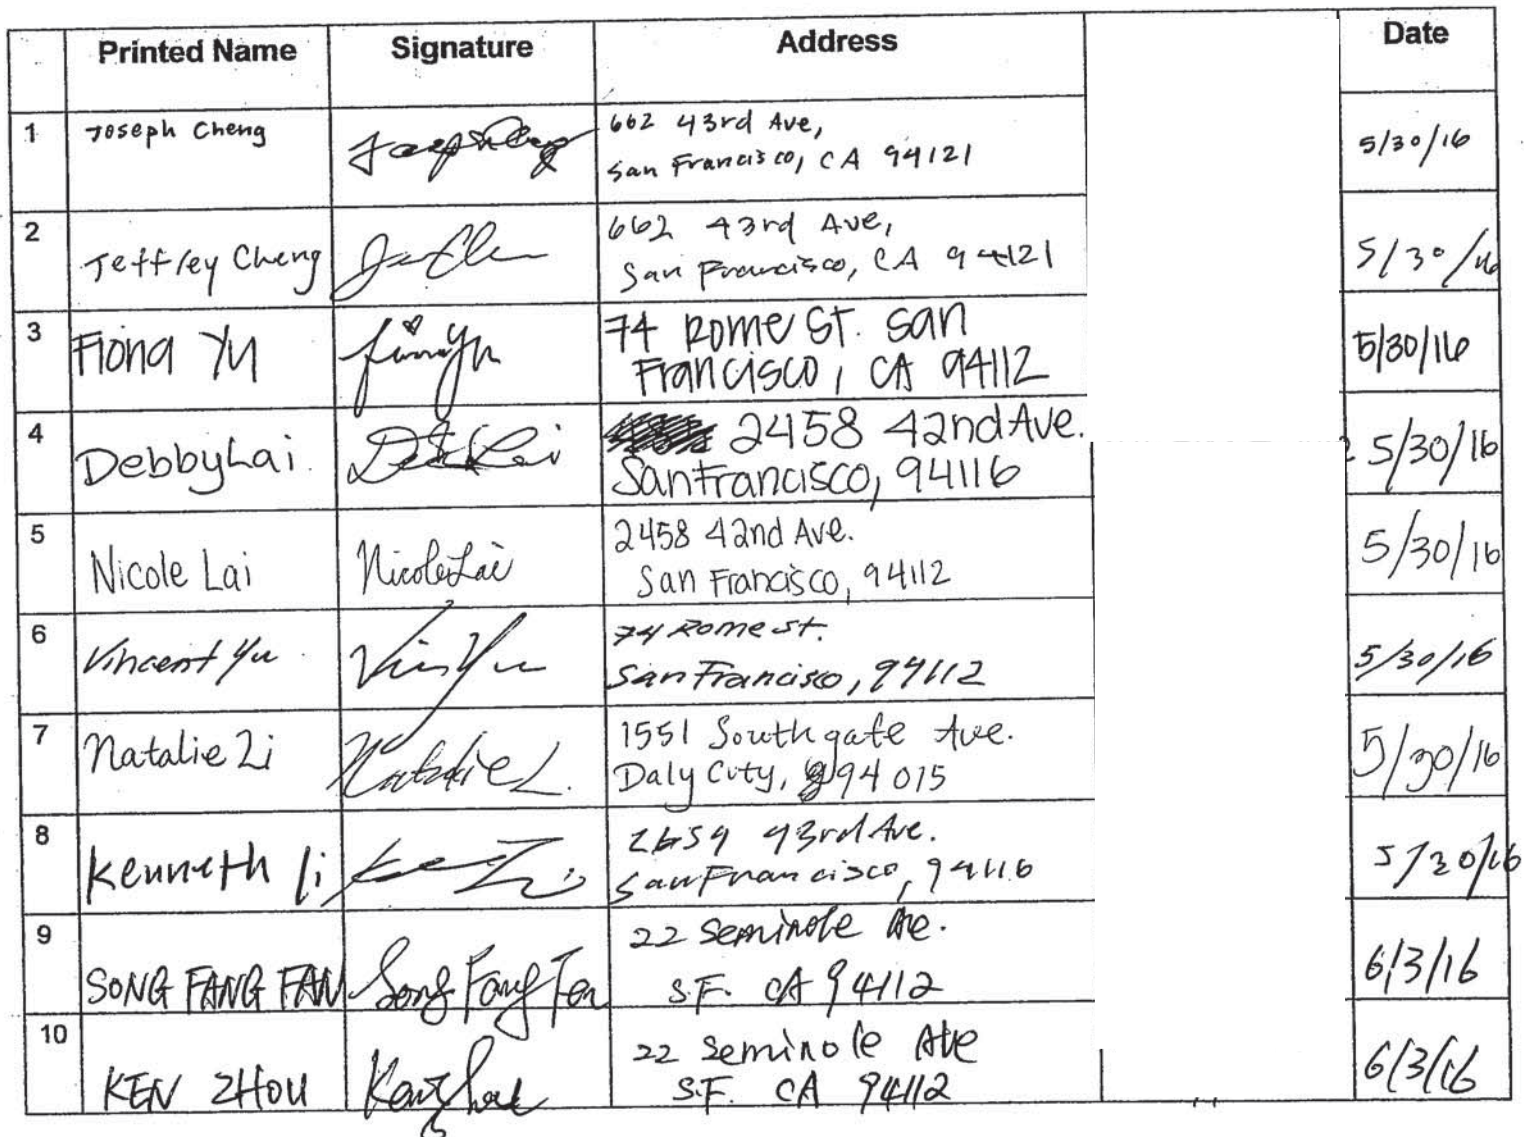 Printed Name Signature Address Date
1 Joseph Cheng Joseph Cheng 662 43rd Ave, 5/30/16
San Francisco, CA 94121
2 Jeffrey Cheng 662 43rd Ave, 5/30/16
San Francisco, CA 94121
3 Fiona Yu Fiona Yu 74 Rome St. San 5/30/16
Francisco, CA 94112
4 Debby Lai 2458 42nd Ave. 5/30/16
San Francisco, 94116
5 Nicole Lai Nicole Lai 2458 42nd Ave. 5/30/16
San Francisco, 94112
6 Vincent Yu Vin Yu 74 Rome St. 5/30/16
San Francisco, 94112
7 Natalie Li Natalie L. 1551 Southgate Ave. 5/30/16
Daly City, 94015
8 Kenneth li 2659 43rd Ave.
San Francisco, 94116
9 SONG FANG FAN Song Fang Fan 22 Seminole Ave. 6/3/16
S.F. CA 94112
10 KEN ZHOU Ken Zhou 22 Seminole Ave 6/3/16
S.F. CA 94112